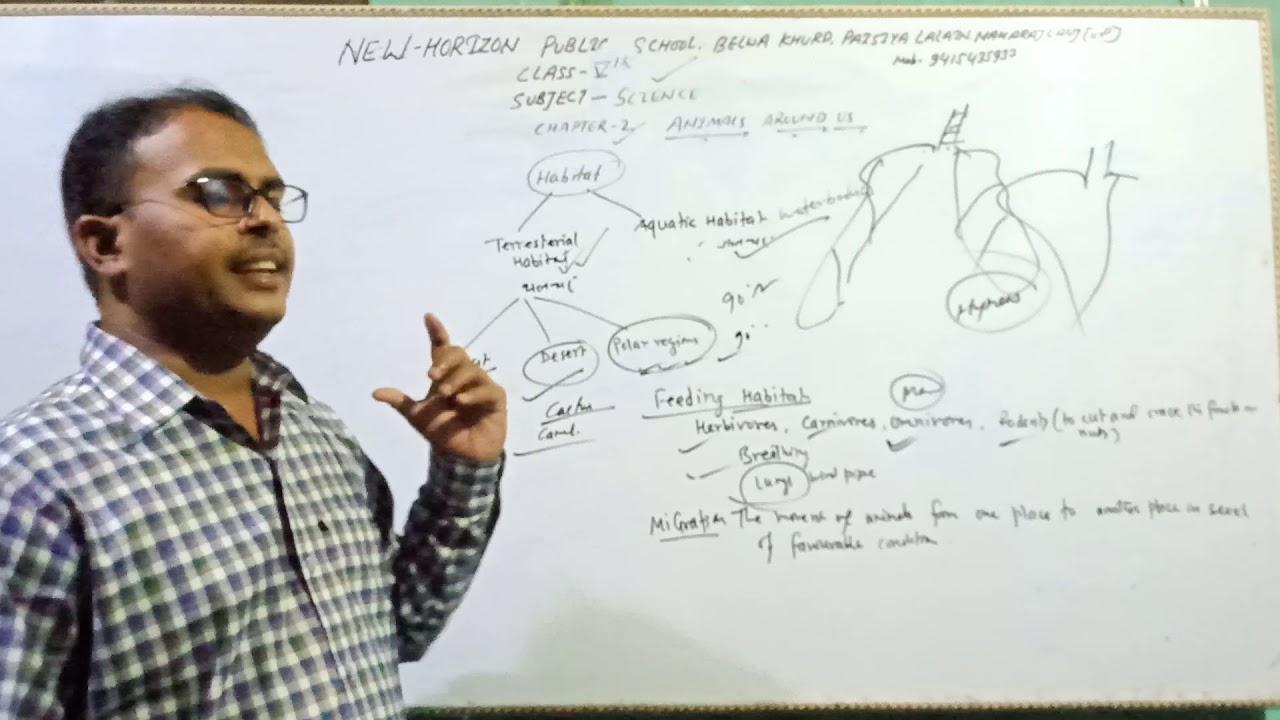 NEW-HORIZON PUBLIC SCHOOL, BELWA KHURD, PAISIYA LALAIN MAHARAJGANJ (UP)
Mob- 9415435937
CLASS- Vth
SUBJECT- SCIENCE
CHAPTER-2, ANIMALS AROUND US
Habitat
Aquatic Habitat waterbodies
Terresterial
Habitat
90° N
90°
Desert
Polar regions
Cactus
Camel
Feeding Habitat
man
Herbivores, Carnivores, omnivores, Rodents (to cut and
nuts)
Breathing
Lungs wind pipe
MiGration The of animals from one place to another place in
of favourable condition